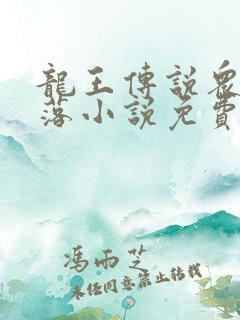 龍王傳說眾
落小說免費
馮雨芝
未經同意禁止轉載